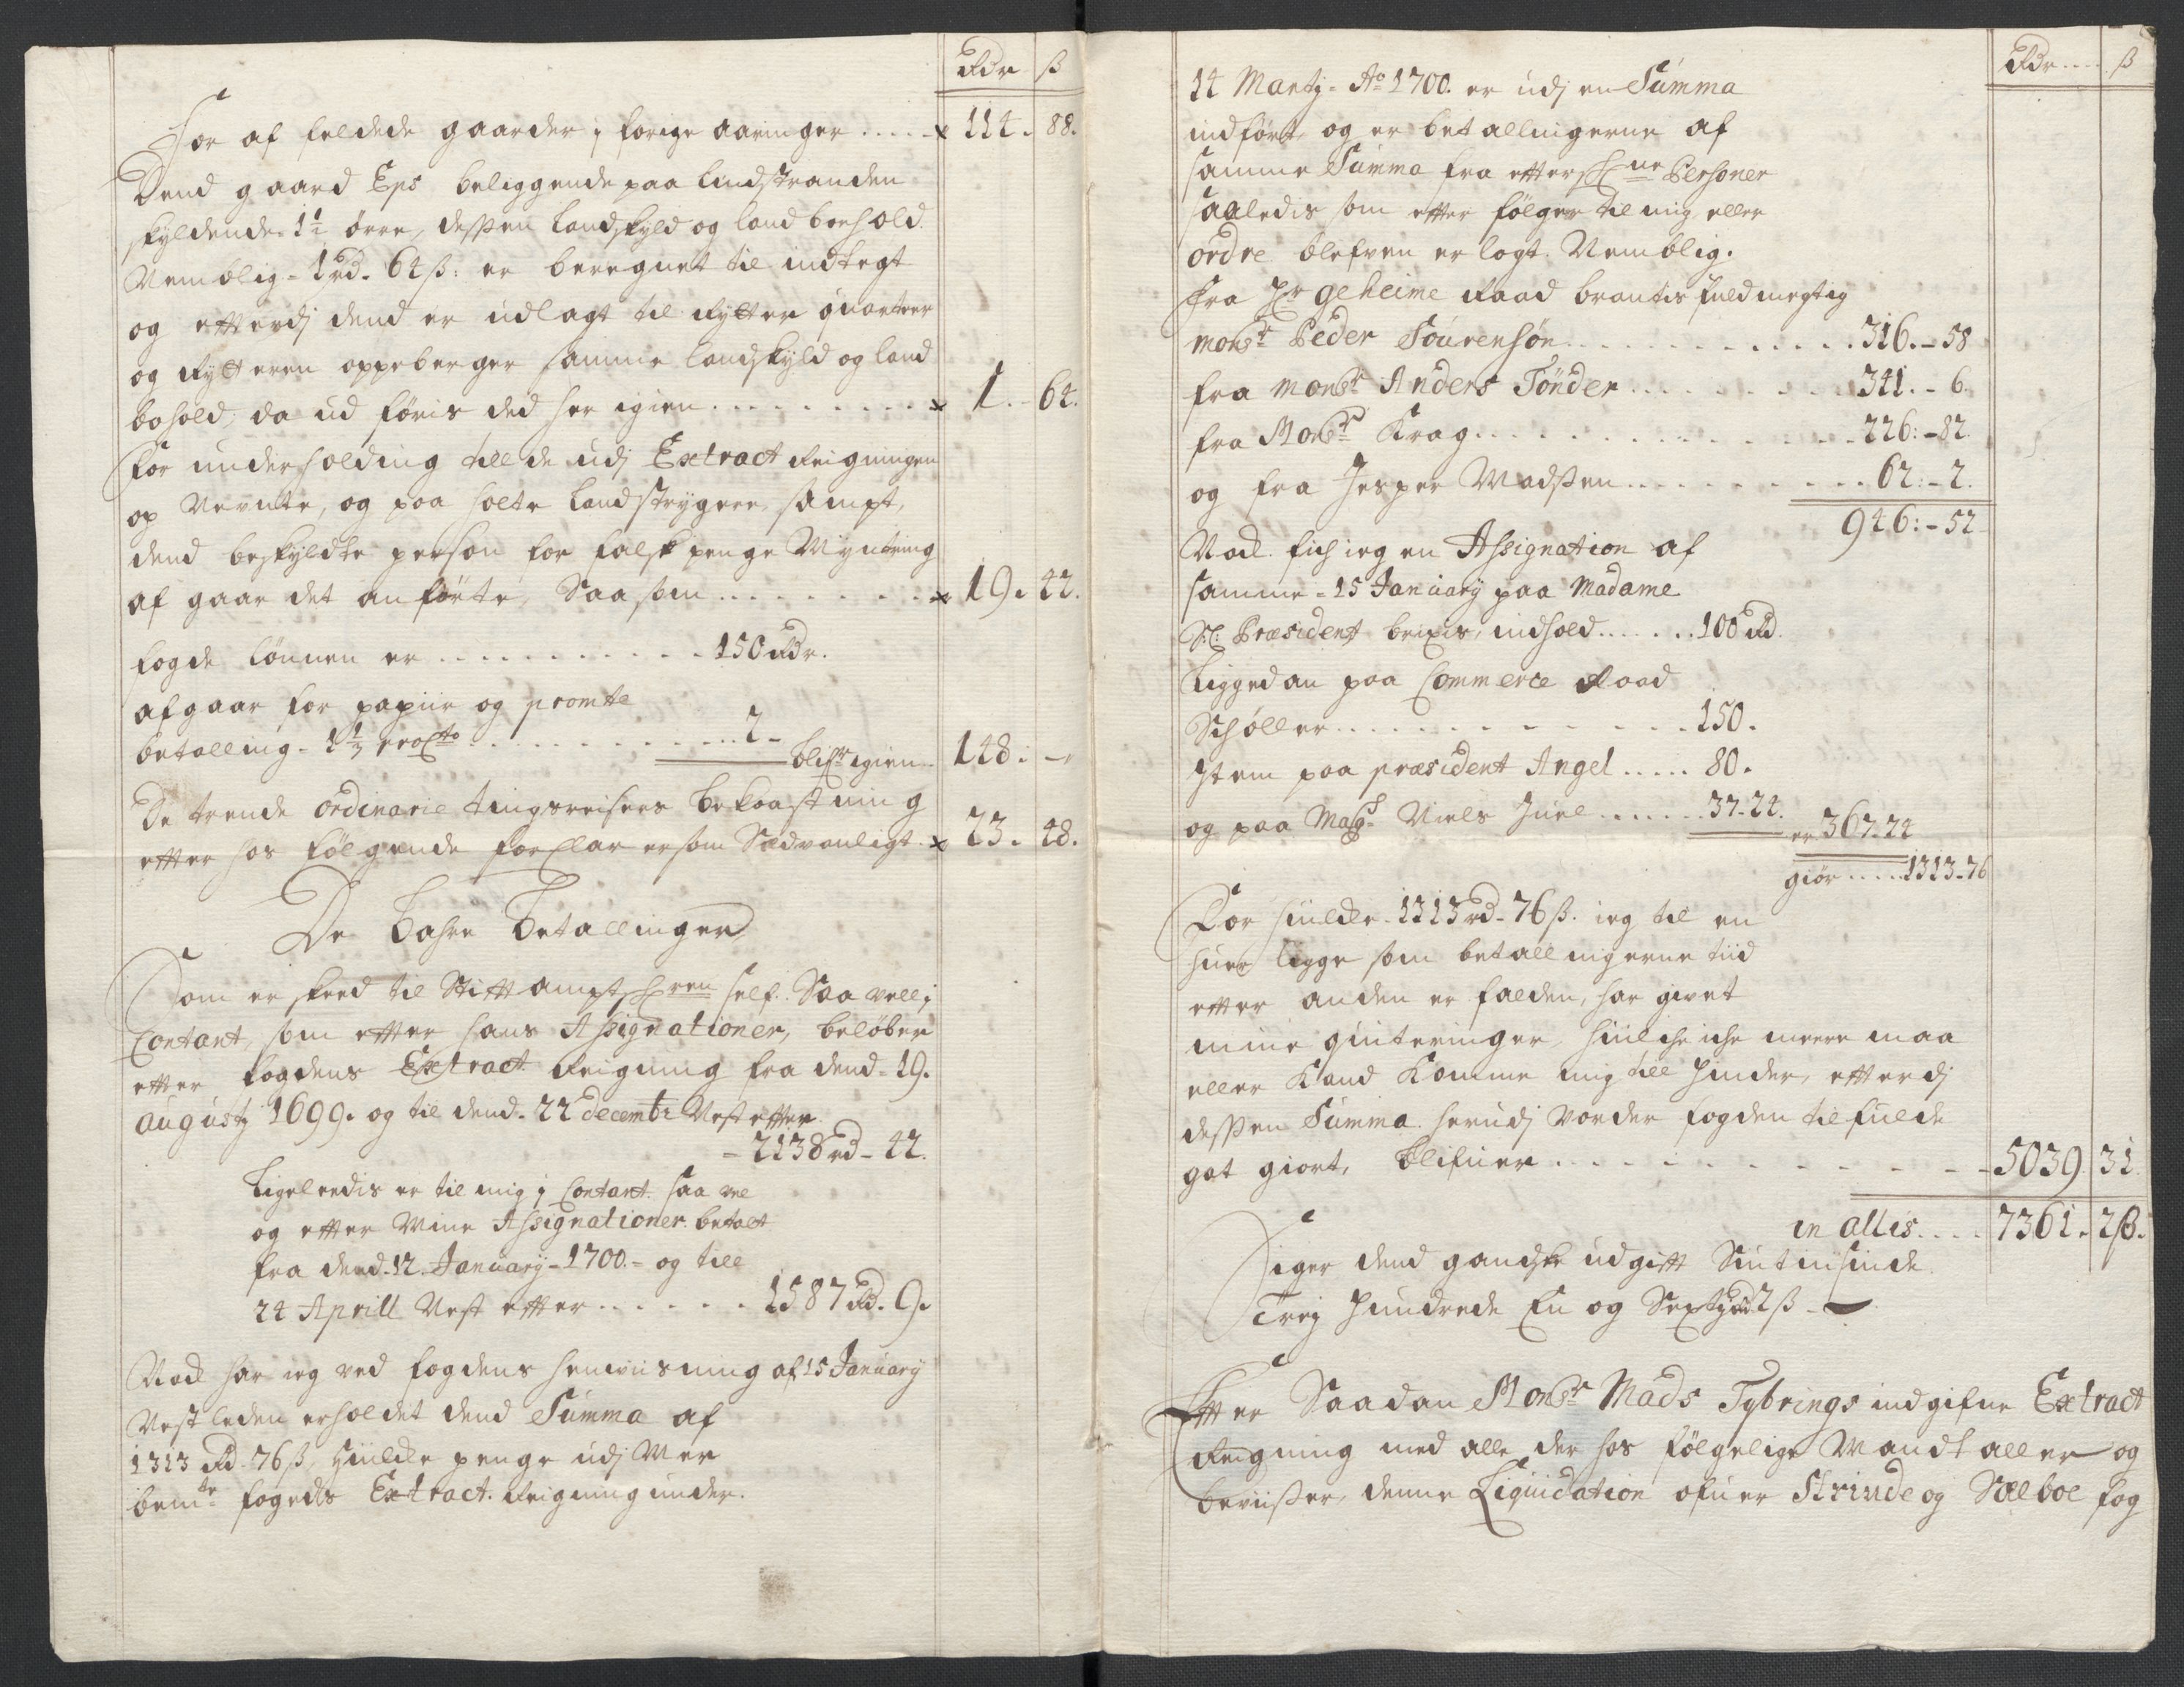 Rdr ß
For af feldede gaarder i forige aaringer ..... x 114. 88.
Dend gaard Eps beliggende paa Lindstranden
skyldende 1½ øere, deßen landskyld og land boehold
Nemblig - 1 rd. 64 ß: er beregnet til indtegt
og efterdj dend er udlagt til Rytter quarteer
og Rytteren oppeberger samme landskyld og land
bohold, da ud føris ded her igien ......... x 1. - 64.
For underholding till de udj Extract Reigningen
op Nevnte, og paa holte Landstrygere, sampt,
dend beskyldte person for falsk penge Myntning
af gaar det anførte, Saasom ......... x 19. 42.
fogde lønnen er ........... 150 Rdr.
afgaar for papiir og promte
betalling - 1⅓ procto ............ 2 -
blifr igien 148: -
De trende ordinarie tingsreisers bekaastning
efter hos følgende forklar er som Sædvanligt x 23. 48.
De bahre betallinger
Som er skeed til Stiftampt Hren self. Saa vell i
Contant, som efter hans Assignationer, beløber
efter fogdens Extract Reigning fra dend 19.
augustj 1699. og til dend 22 decembr Nest efter
- 2138 rd - 42.
Ligeledis er til mig i Contant saa vel
og efter Mine Assignationer betalt
fra dend 12. January - 1700. - og till
24 Aprill Nest efter ...... 1587 Rd. 9.
Nock har ieg ved fogdens henviisning af 15 January
Nest leden erholdet dend Summa af
1313 Rd 76 ß, Huilcke penge udj Mer
bemte fogeds Extract. Reigning under.
Rdr .... ß
14 Martj - Ao 1700. er udj en Summa
indført og er betallingerne af
samme Summa fra efterskrne Personer
saaledis som efter følger til mig eller
ordre blefven erlagt. Nemblig.
fra Hr geheime Raad brantis fuldmegtig
monsr Peder Sourensøn ............ 316. - 58
fra monsr Anders Tønder ......... 341. - 6.
fra Monsr Krag .............. 226: - 82.
og fra Jesper Madßen .......... 62: - 2.
946: - 52
Nock fich ieg en Assignation af
samme - 15 January paa Madame
Sl: Præsident brixis, indhold ...... 100 Rd.
Liggedan paa Commerce Raad
Schøller ............... 150.
Item paa præsident Angel ..... 80.
og paa Magr Niels Juel ....... 37 - 24.
er 367 - 24
giør ..... 1313 - 76
For huilcke 1313 rd - 76 ß. ieg til en
huer ligge som betallingerne tiid
efter anden er falden, har givet
mine quiteringer, huilche iche meere maa
eller kand komme mig till Hinder, efterdj
deßen Summa herudj vorder fogden til fulde
got giort, blifuer ........... 5039. 31.
in allis .... 7361. 2 ß.
Siger dend gandske udgifft Siutusinde
Trej Hundrede En og Sextj rd 2 ß -
Efter Saadan Monsr Mads Tybrings indgifne Extract
Reigning med alle der hos følgelige Mandtaller og
beviißer, denne Liquidation ofuer Strinde og Sælboe fog